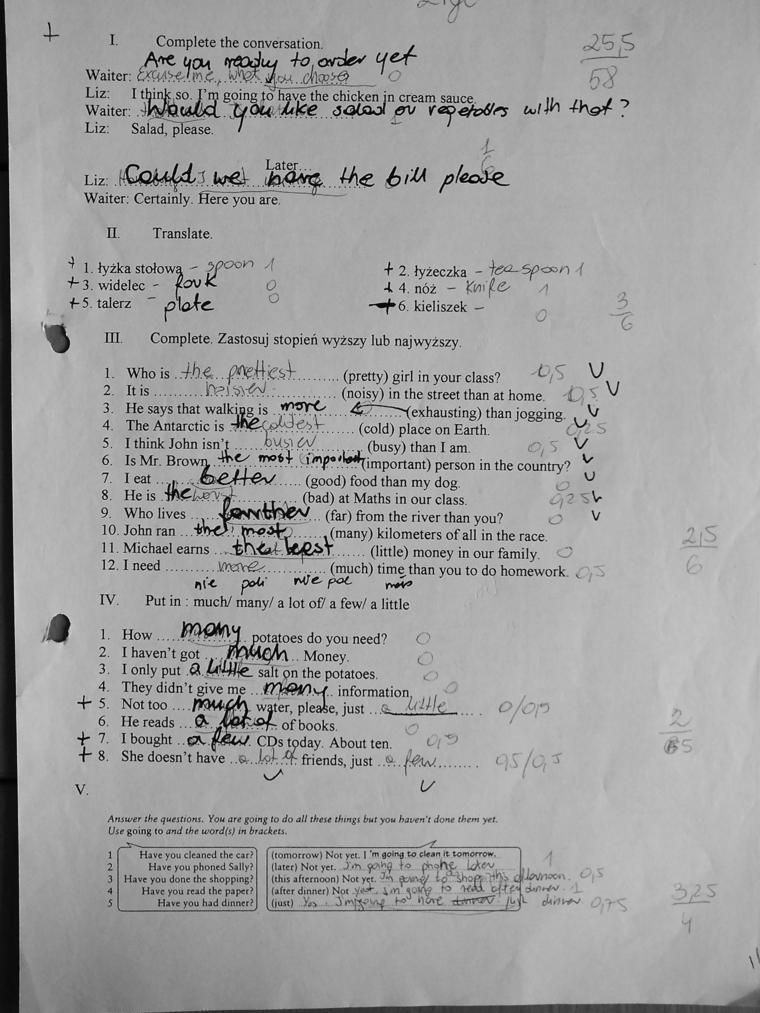 25,5
58
I. Complete the conversation.
Are you ready to order yet
Waiter: Excuse me, what you choose? 0
Liz: I think so. I'm going to have the chicken in cream sauce.
Waiter: Would you like salad or vegetables with that?
Liz: Salad, please.
1
6
Later...
Liz: Could we have the bill please
Waiter: Certainly. Here you are.
II. Translate.
+ 1. łyżka stołowa - spoon 1
+ 2. łyżeczka - tea spoon 1
+ 3. widelec - fork 0
+ 4. nóż - knife 1
+ 5. talerz - plate 0
+ 6. kieliszek - 0
3
6
III. Complete. Zastosuj stopień wyższy lub najwyższy.
1. Who is ...the prettiest......... (pretty) girl in your class? 0,5 V
2. It is ................. (noisy) in the street than at home. 0,5 V
3. He says that walking is ..more............(exhausting) than jogging. V
4. The Antarctic is the coldest ....... (cold) place on Earth. 0,25
5. I think John isn't ....busier........ (busy) than I am. 0,5 V
6. Is Mr. Brown the most important (important) person in the country? V
7. I eat ....better........... (good) food than my dog. 0 V
8. He is the worst ............. (bad) at Maths in our class. 0,25 V
9. Who lives ....farther.... (far) from the river than you? 0 V
10. John ran ...the most...... (many) kilometers of all in the race.
11. Michael earns ...the least...... (little) money in our family. 0
12. I need .........more.......... (much) time than you to do homework. 0,5
2,5
6
nie poli nie pol
IV. Put in : much/ many/ a lot of/ a few/ a little
1. How ...many... potatoes do you need? 0
2. I haven't got ...much... Money. 0
3. I only put .a little salt on the potatoes. 0
4. They didn't give me ...many.. information. 0
+ 5. Not too ...much water, please, just ...a little...... 0/0,5
6. He reads ...a lot of of books. 0
+ 7. I bought ..a few CDs today. About ten. 0,5
+ 8. She doesn't have ..a lot of friends, just ..a few........ 0,5/0,5
2
V.
Answer the questions. You are going to do all these things but you haven't done them yet.
Use going to and the word(s) in brackets.
1 Have you cleaned the car? (tomorrow) Not yet. I 'm going to clean it tomorrow.
2 Have you phoned Sally? (later) Not yet. I'm going to phone later 1
3 Have you done the shopping? (this afternoon) Not yet. I'm going to shop this afternoon. 0,5
4 Have you read the paper? (after dinner) Not yet. I'm going to read after dinner. 1
5 Have you had dinner? (just) Yes. I'm going to have dinner just dinner 0,75
3,25
4